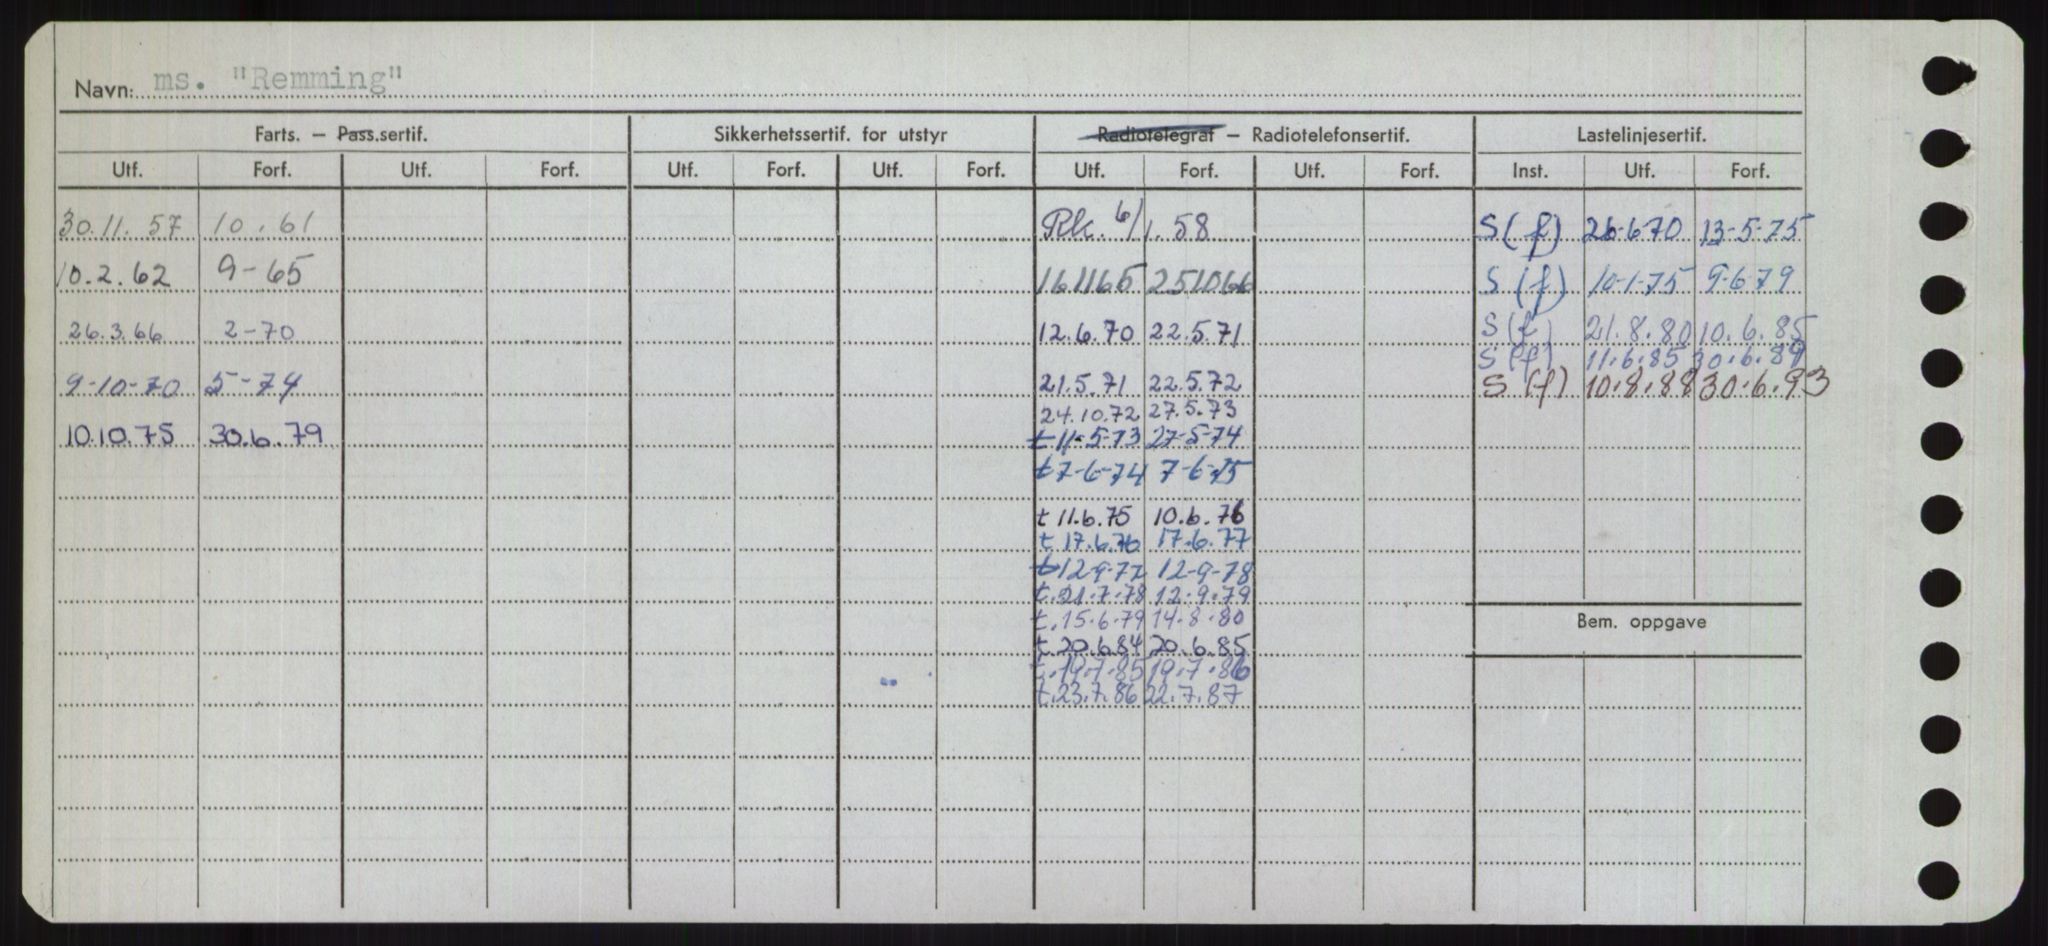 Navn: ms. "Remming"
Farts. — Pass.sertif. Sikkerhetssertif. for utstyr Radiotelegraf — Radiotelefonsertif. Lastelinjesertif.
Utf. Forf. Utf. Forf. Utf. Forf. Utf. Forf. Utf. Forf. Utf. Forf. Inst. Utf. Forf.
30.11.57 10.61 Rk. 6/1.58 S(f) 26-6-70 13-5-75
10.2.62 9-65 161165 251066 S(f) 10-1-75 9-6-79
26.3.66 2-70 12.6.70 22.5.71 S(f) 21.8.80 10.6.85
S(f) 11.6.85 30.6.89
9-10-70 5-74 21.5.71 22.5.72 S(f) 10.8.88 30.6.93
24.10.72 27.5.73
10.10.75 30.6.79 t 11-5-73 27-5-74
t 7-6-74 7-6-75
t 11.6.75 10.6.76
t 17.6.76 17.6.77
t 12-9-77 12-9-78
t. 21.7.78 12.9.79
t. 15.6.79 14.8.80
Bem. oppgave
t. 20.6.84 20.6.85
t. 19.7.85 19.7.86
t. 23.7.86 22.7.87